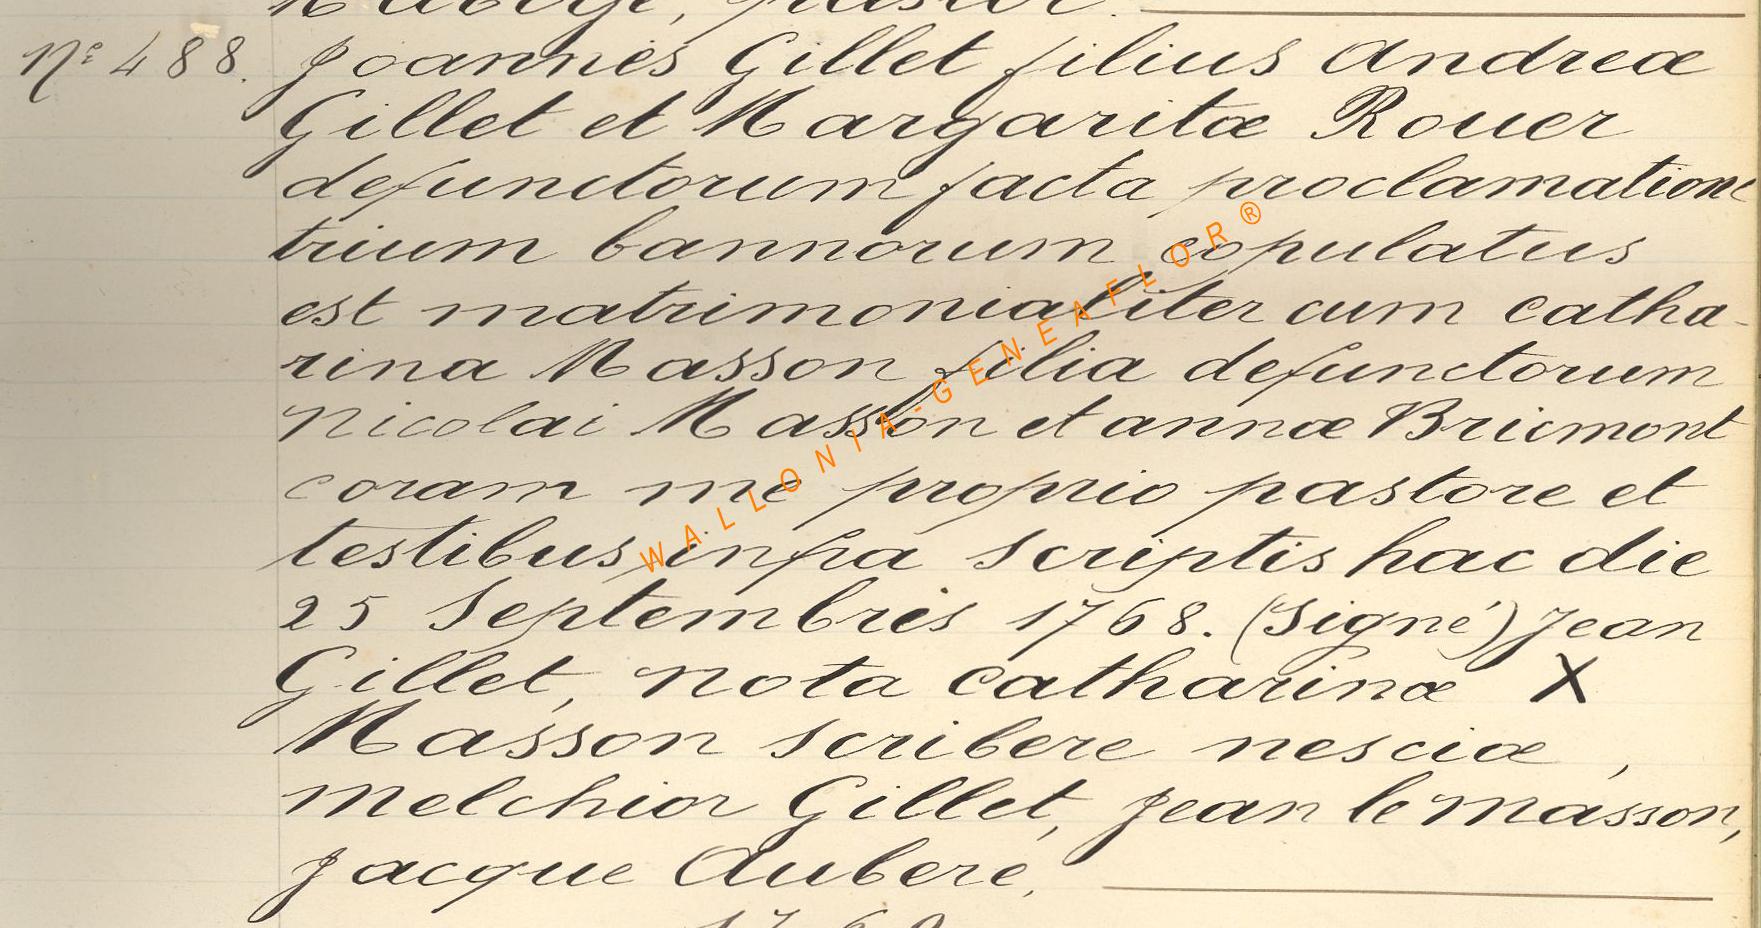 pastor.
N° 488. Joannes Gillet filius Andreæ
Gillet et Margaritæ Rouer
defunctorum facta proclamatione
trium bannorum copulatus
est matrimonialiter cum catha-
rina Masson filia defunctorum
Nicolai Masson et annæ Bricmont
coram me proprio pastore et
testibus infra scriptis hac die
25 Septembris 1768. (Signé) Jean
Gillet, nota catharinæ X
Masson scribere nesciæ,
Melchior Gillet, Jean le Masson,
Jacque Aubere,
WALLONIA-GENEAFLOR®